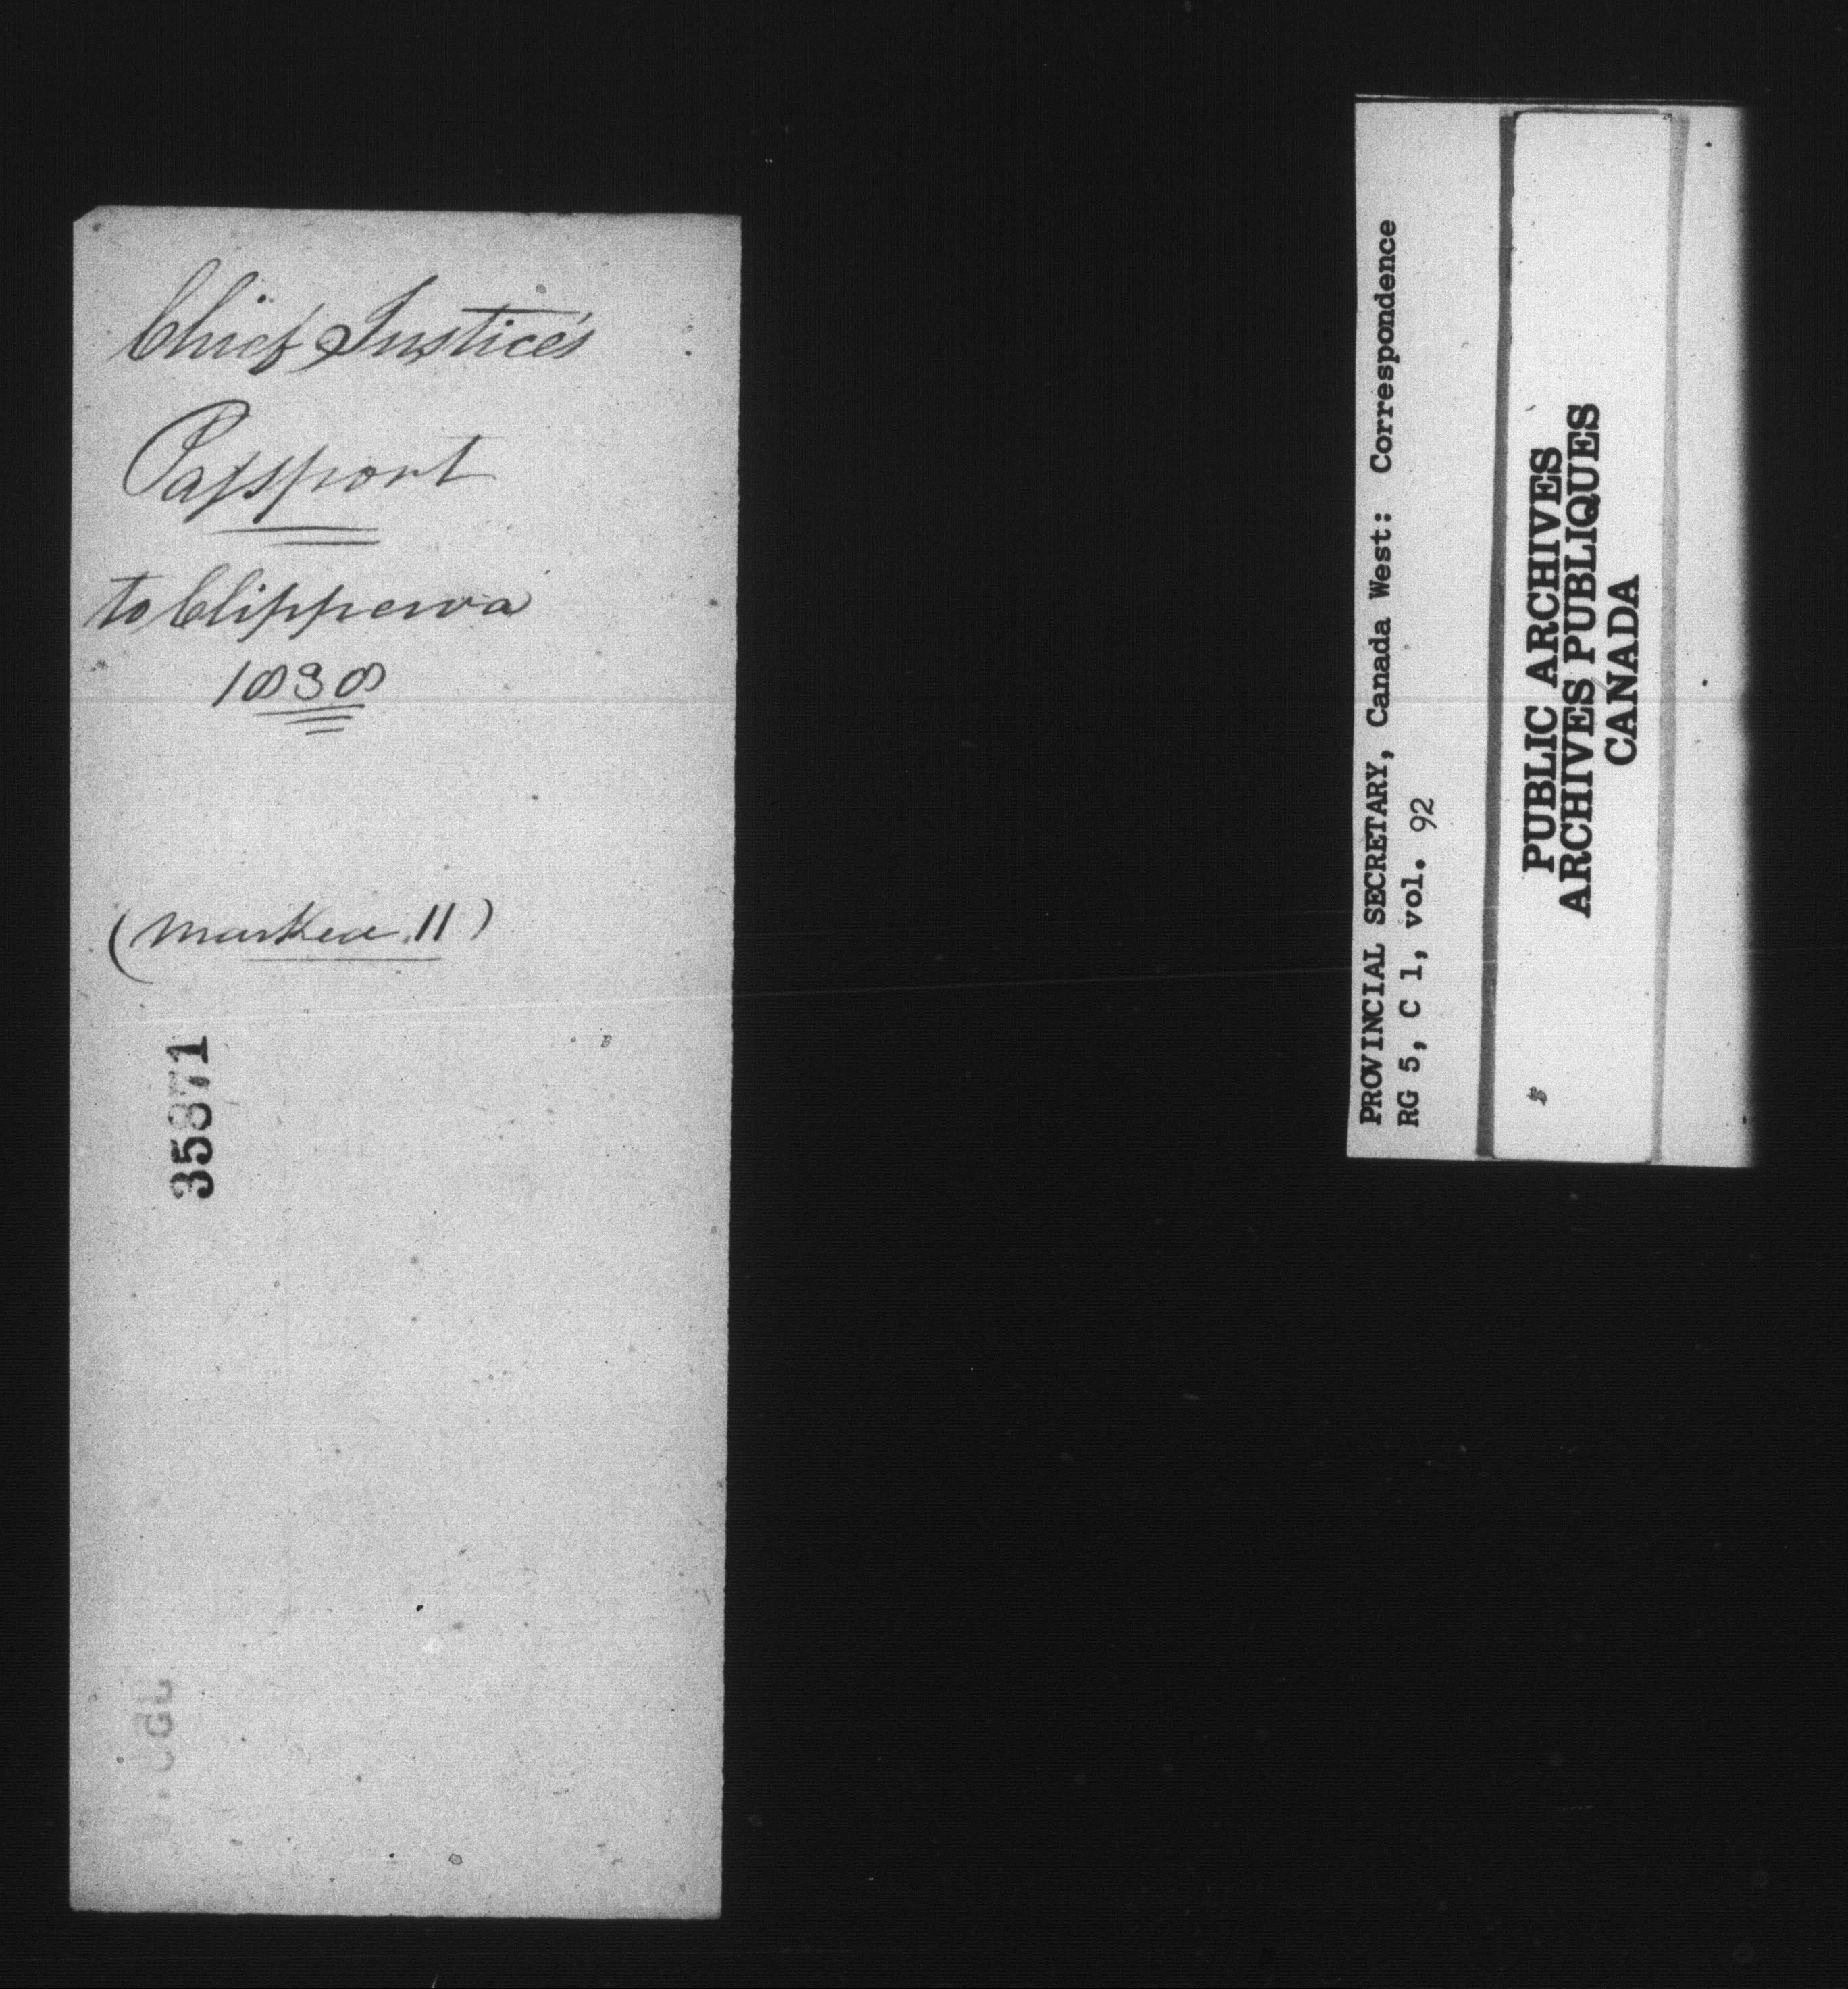 Chief Justice's
Passport
to Clippewa
1838
(marked 11)
35871
PROVINCIAL SECRETARY, Canada West: Correspondence
RG 5, C 1, vol. 92
PUBLIC ARCHIVES
ARCHIVES PUBLIQUES
CANADA